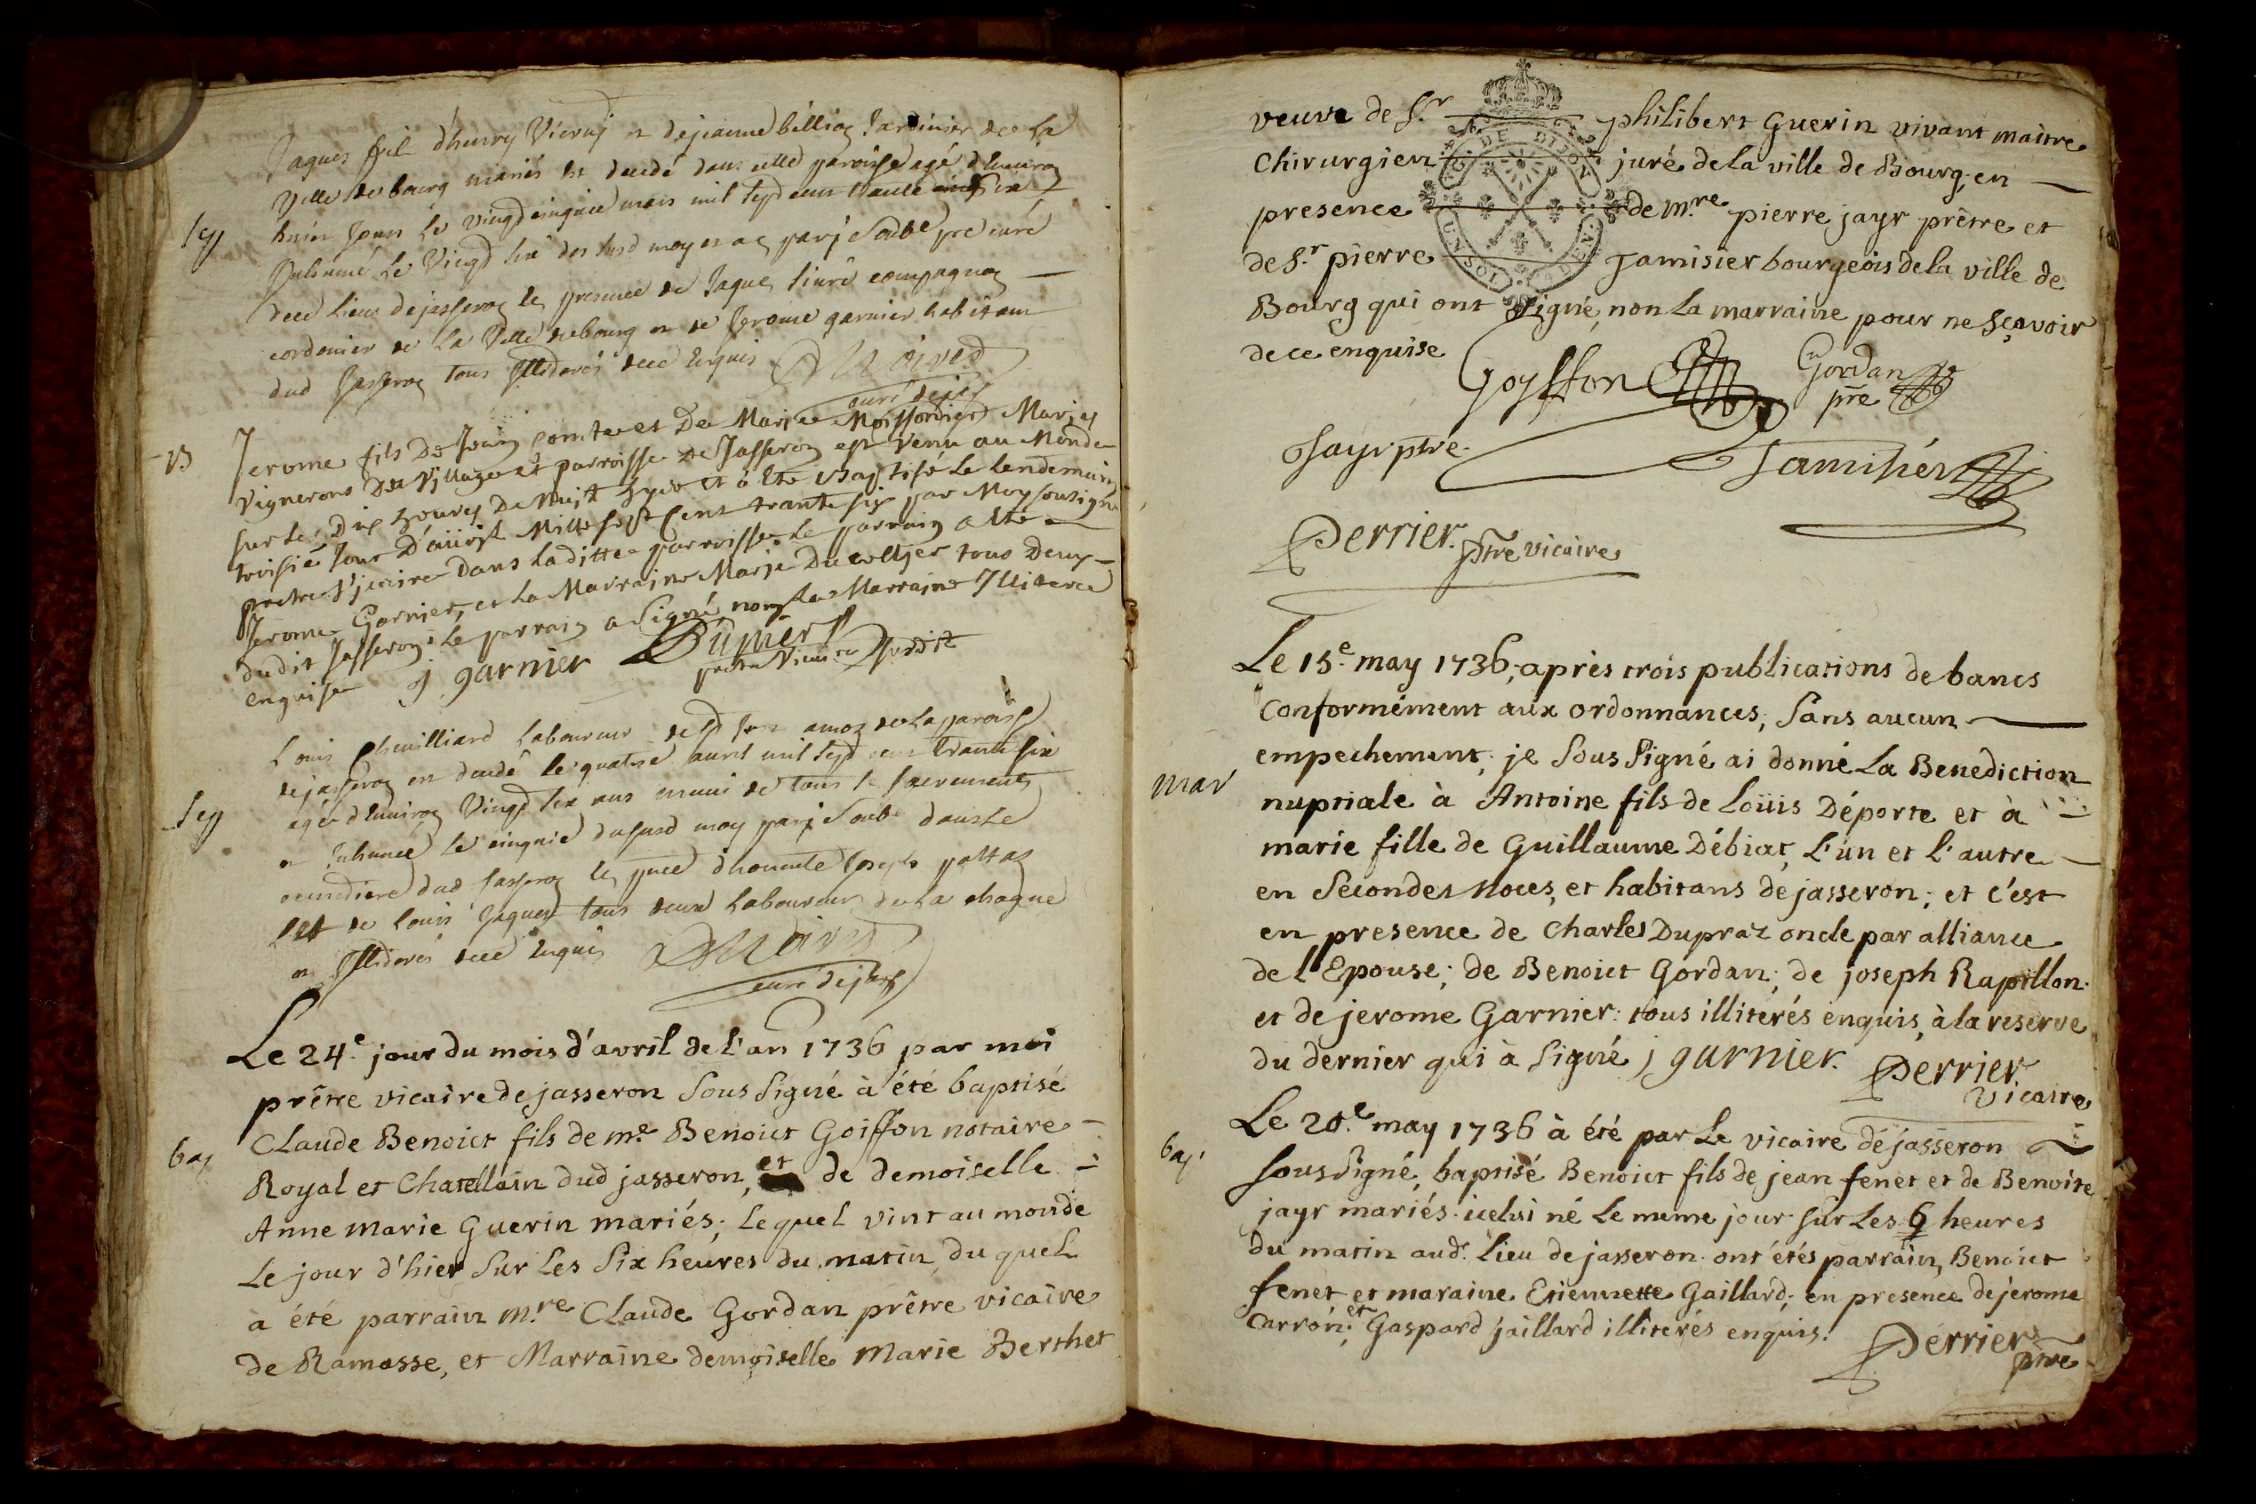 Jaques fils dhenry Vieruj et dejeanne billion Jardinier dee la
Ville de bourg mariés est decedé dans cette paroisse agé denviron
huict jours le vingt cinquie mars mil sept cent trante six
sep
Inhumé le vingt six des susd moy et an par je soubs pre curé
dece lieux dejasseron les presence de Jaques compagnon
cordonier de la Ville de bourg et de Jerome garnier habitant
dud Jasseron tous illiterés dece enquis
curé dejass
B
Jerome fils De Jean comte et De Marie Moissondier Mariez
Vignerons Du Village et parroisse de Jasseron est venu au Monde
sur les Dix heures De nuit hyer et à été Baptisé Le lendemain
troisié Jour D'auvril Mille sept cent trante six par Moy sousigné
prestre vicaire Dans laditte parroisse. Le parrain a été
Jerome Garnier, et La Marraine Marie Ducollier tous Deux
dudit Jasseron. Le parrain a signé, non la Marraine Illiteree
enquise j garnier
prestre vicaire susdit
Louis Chevilliard Laboureur de la paroisse
dejasseron est decedé le quatre avril mil sept cent trante six
agé denviron vingt six ans muni de tous le sacrements
sep
et Inhumé le cinquié dususd moy par je soubs dans le
cimetiere dud Jasseron les pnce dhonneste Joseph
et de louis Jaques tous deux Laboureurs de La chague
et illiterés dece enquis
curé dejass
Le 24.e jour du mois d'avril de l'an 1736 par moi
prêtre vicaire de jasseron sous signé à été baptisé
bap
Claude Benoict fils de me. Benoict Goiffon notaire
Royal et Chatellain dud jasseron, et de demoiselle
Anne marie Guerin mariés; lequel vint au monde
le jour d'hier sur les six heures du matin, du quel
a été parrain m.re Claude Gordan prêtre vicaire
de Ramasse, et Marraine demoiselle Marie Berthet
veuve de S.r philibert Guerin vivant maitre
Chirurgien juré de la ville de Bourg; en
presence de m.re pierre jayr prêtre et
de S.r pierre Jamisier bourgeois de la ville de
Bourg qui ont signé, non la marraine pour ne sçavoir
de ce enquise
Goyffon Gordan
pre
Jayr ptre. Jamisier
Perrier. ptre vicaire
Le 15.e may 1736; après trois publications de bancs
conformément aux ordonnances; sans aucun
empechement; je sous signé ai donné la Benediction
mar
nuptiale à Antoine fils de Loüis Déporte et à
marie fille de Guillaume Débiat, l'un et l'autre
en secondes noces, et habitans de jasseron; et c'est
en presence de Charles Dupraz oncle par alliance
de l'Epouse; de Benoict Gordan; de joseph Rapillon
et de jerome Garnier: tous illiterés enquis, à la reserve
du dernier qui à signé j garnier. Perrier
vicaire
Le 20.e may 1736 à été par le vicaire de jasseron
bap.
sous signé, baptisé Benoict fils de jean fenet et de Benoite
jayr mariés. icelui né le meme jour sur les 6 heures
du matin aud. lieu de jasseron. ont étés parrain, Benoict
fenet et maraine Etiennette Gaillard; en presence de jerome
Carron, et Gaspard jaillard illiterés enquis. Perrier
ptre